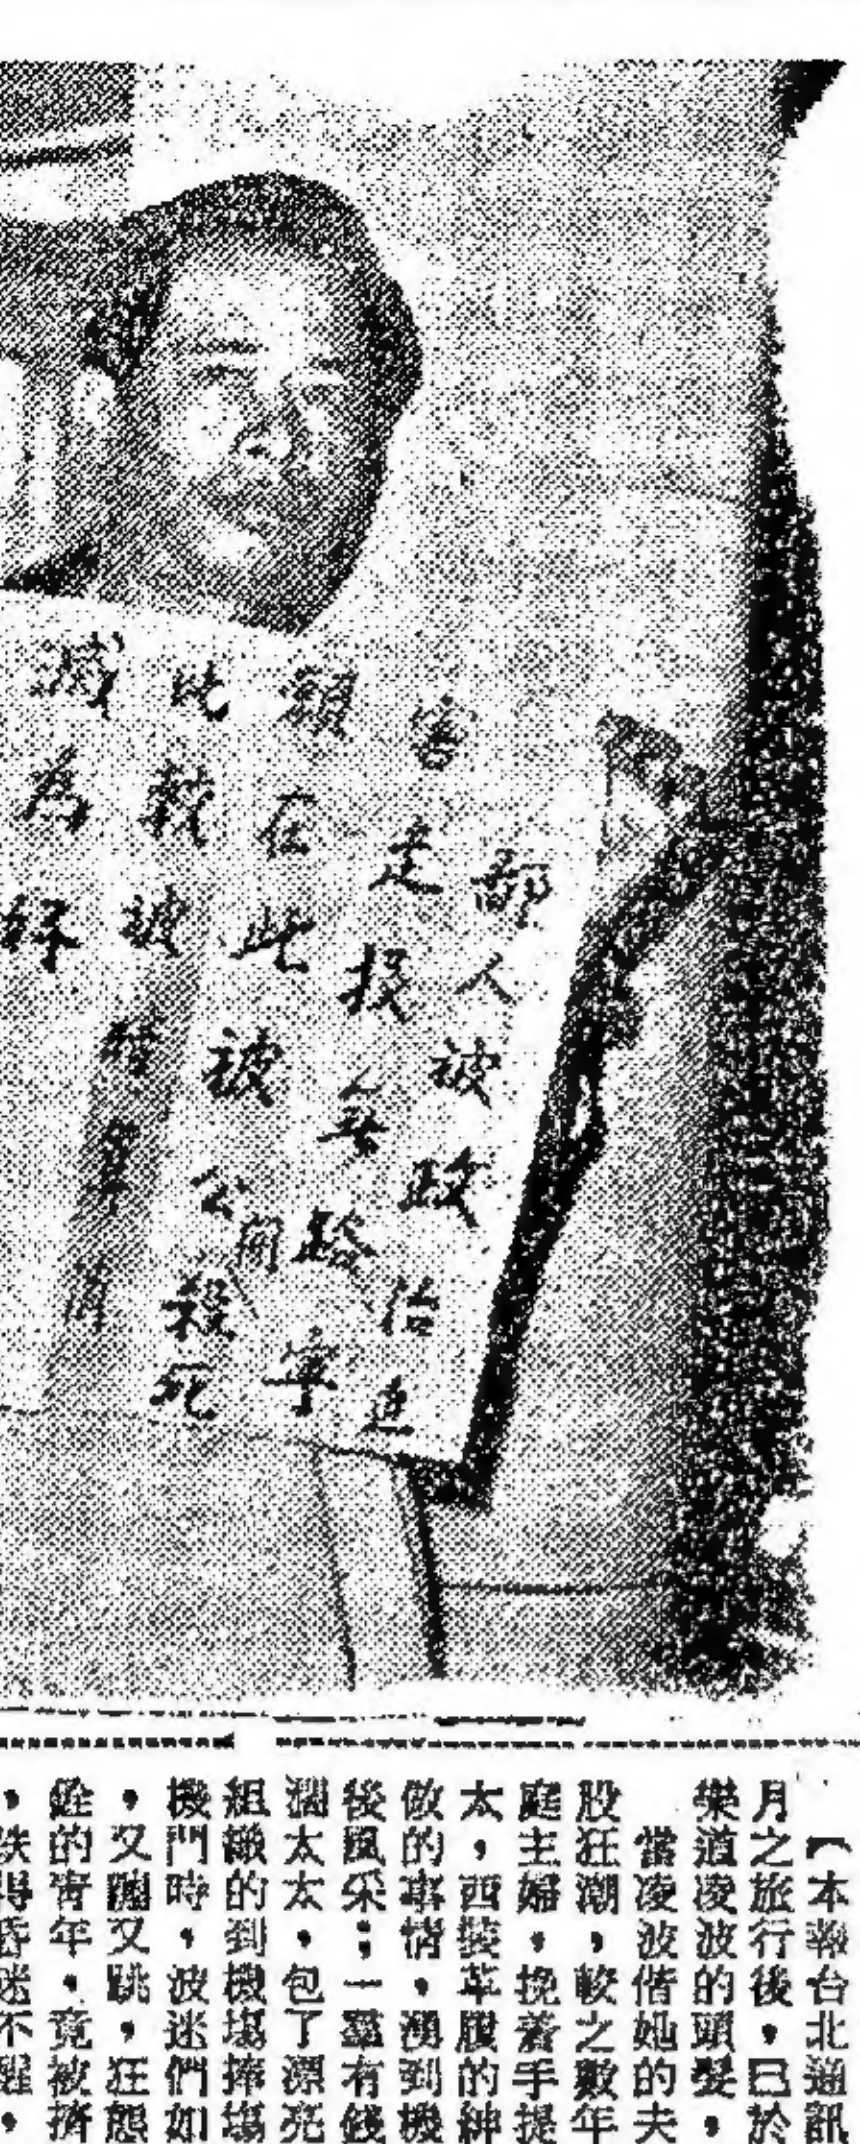 鄙人被政治迫
害走投無路寧
願在此被公開殺死
此
滅為
【本報台北通訊
月之旅行後,已於
樂道凌波的頭髮,
當凌波偕她的夫
股狂潮,較之數年
庭主婦,挽着手提
太,西裝革履的紳
做的事情,湧到機
後風采;一羣有錢
濶太太,包了漂亮
組織的到機塲捧塲
機門時,波迷們如
,又跳,狂態
的青年,竟被擠
,跌得昏迷不醒,